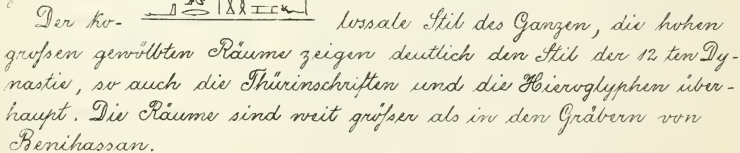 Der ko- lossale Stil des Ganzen, die hohen
grofsen gewölbten Räume zeigen deutlich den Stil der 12 ten Dy-
nastie, so auch die Thürinschriften und die Hieroglyphen über-
haupt. Die Räume sind weit gröfser als in den Gräbern von
Benihassan.